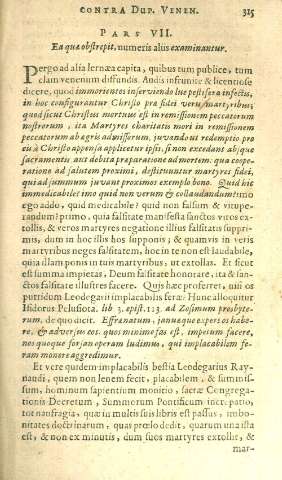 CONTRA DUP. VENEN. 315
PARS VII.
Ea quæ obstrepit, numeris aliis examinantur.
Pergo ad alia lernæa capita, quibus tum publice, tum
clam venenum diffundis. Audis infrunite & licentiose
dicere, quod immorientes inserviendo lue pestifera infectis,
in hoc configurantur Christo pro fidei veris martyribus;
quod sicut Christus mortuus est in remissionem peccatorum
nostrorum, ita Martyres charitatis mori in remissionem
peccatorum ab agris admissorum, juvando ut redemptio pro
eis à Christo appensa applicetur ipsis, si non excedant absque
sacramentis aut debita præparatione ad mortem. qua coope-
ratione ad salutem proximi, destituuntur martyres fidei,
qui ad summum juvant proximos exemplo bono. Quid hic
immedicabile? imo quid non verum & collaudandum? imo
ego addo, quid medicabile? quid non falsum & vitupe-
randum? primo, quia falsitate manifesta sanctos viros ex-
tollis, & veros martyres negatione illius falsitatis suppri-
mis, dum in hoc illis hos supponis; & quamvis in veris
martyribus neges falsitatem, hoc in te non est laudabile,
quia illam ponis in tuis martyribus, ut extollas. Et sicut
est summa impietas, Deum falsitate honorare, ita & san-
ctos falsitate illustres facere. Quis hæc proferret, nisi os
putridum Leodegarii implacabilis feræ? Hunc alloquitur
Isidorus Pelusiota. lib 3. epist. 123. ad Zosimum presbyte-
rum. de quo dicit. Effrænatum, januæque expers os habe-
re, & adversus eos, quos minime fas est, impetum facere,
nos quoque forsan operam ludimus, qui implacabilem fe-
ram monere aggredimur.
Et vere quidem implacabilis bestia Leodegarius Ray-
naudi, quem non lenem fecit, placabilem, & submis-
sum, hominum sapientum monitio, sacræ Congrega-
tionis Decretum, Summorum Pontificum increpatio,
tot naufragia, quæ in multis suis libris est passus, imbo-
nitates doctrinarum, quas prœlo dedit, quarum una ista
est, & non ex minutis, dum suos martyres extollit, &
mar-